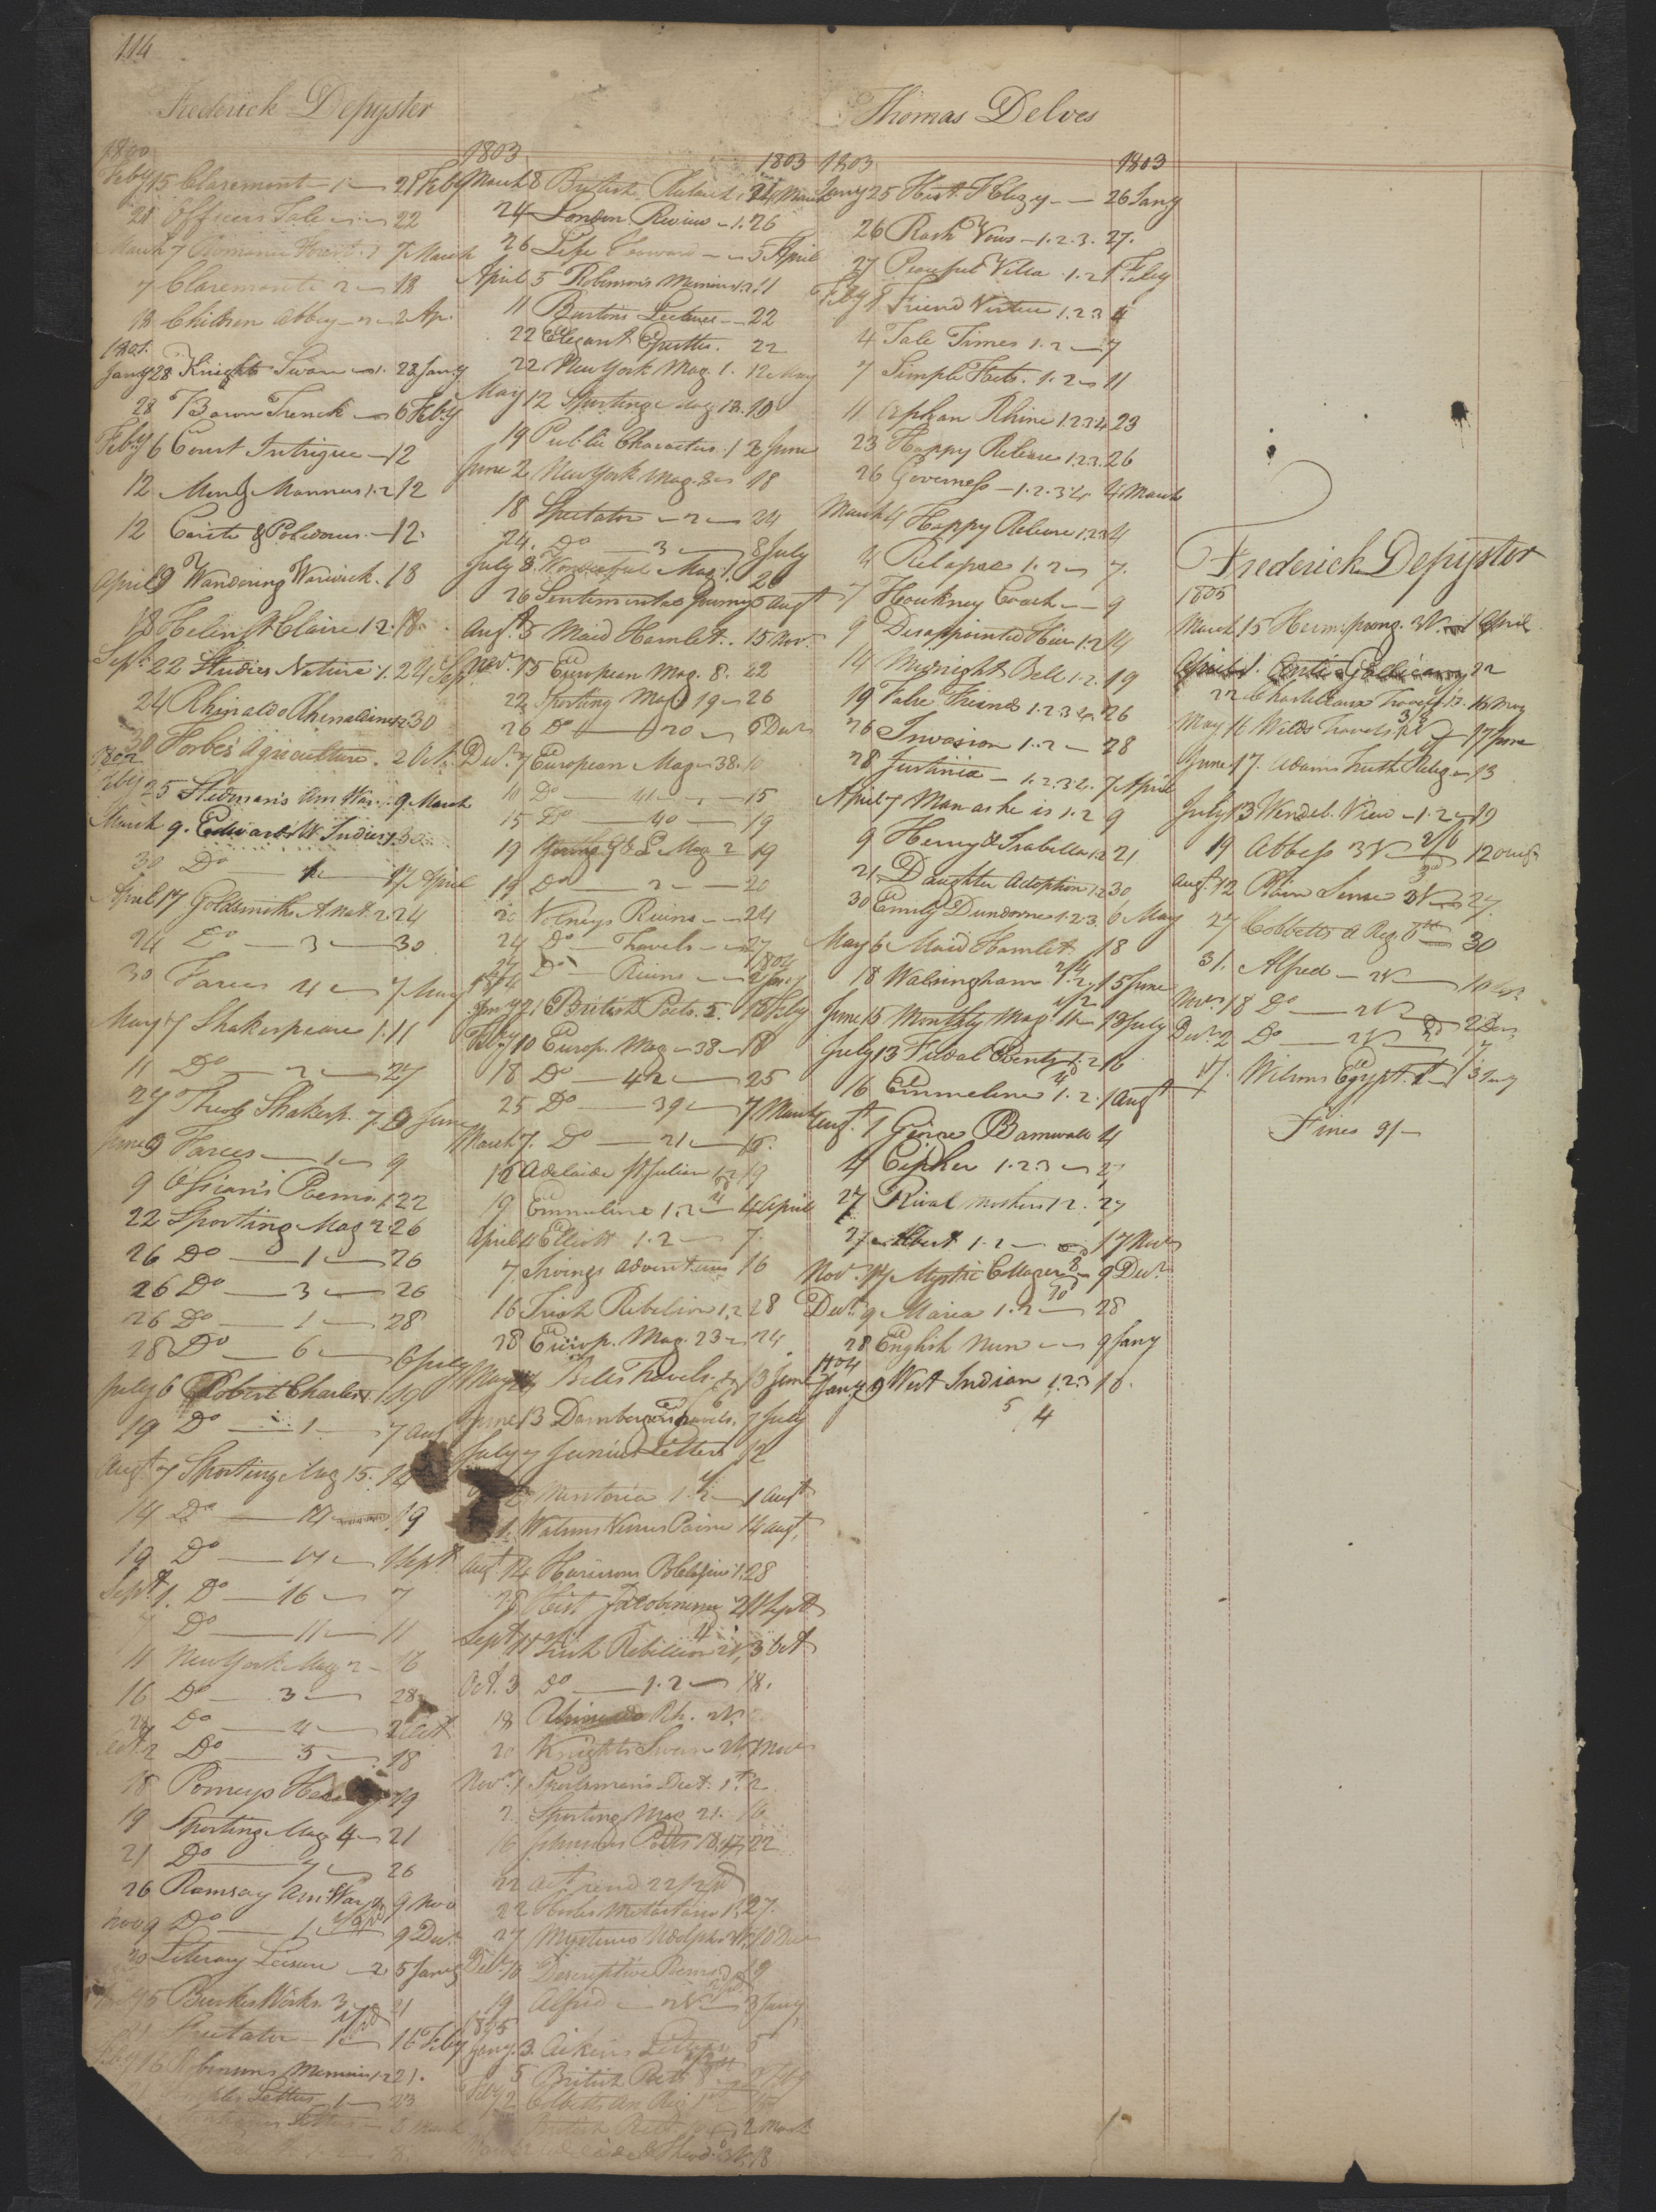 114
Frederick Depyster
1800
Feby 15 Claremont - 1 - 21 Feby
21 Officers Tale - 22
March 7 Romance Forest . 1 7 March
7 Claremont 2 - 18
18 Children Abbey - 2 Ap.
1801.
Jany 28 Knights Swan - 1. 28 Jany
28 Baron Trenck - 6 Feby
Feby 6 Court Intrigue - 12
12 Men & Manners 1.2 12
12 Carite & Polidorus - 12
April 9 Wandering Warwick. 18
18 Helin St Claire 1.2. 18
Sept. 22 Studies Nature 1. 24 Sept
24 Rhinaldo Rhinaldini 1.2 30
30 Forbes Agriculture. 2 Oct.
1802
Feby 25 Stedman's Am War. 9 March
March 9. Edwards W. Indies 1 30
30 Do 17 April
April 17 Goldsmiths A. Nat. 2 24
24 Do - 3 - 30
30 Farces 4 - 7 May
May 7 Shakespeare 1. 11
11 Do - 2 - 27
27 Theob Shakesp. 7. 9 June
June 9 Farces - 1 - 9
9 Ossian's Poems 1 22
22 Sporting Mag 2 26
26 Do - 1 - 26
26 Do - 3 - 26
26 Do - 1 - 28
28 Do - 6 - 6 July
July 6 Robert Charles V 1. 19
19 Do - 1 - 7 Aug
Augt 7 Sporting Mag 15. 14
14 Do - 19
19 Do - 17 - 1 Sept.
Sept. 1. Do - 16 - 7
7 Do - 11 - 11
11 New York Mag 2 - 16
16 Do - 3 - 28
28 Do - 4 - 2 Oct
Oct. 2 Do - 5 - 18
18 Pomeys 19
19 Sporting Mag 4 - 21
21 Do - 7 - 26
26 Ramsay Am War 2 9 Nov
Nov 9 Do - 1 9 Decr
30 Literary Leisure - 2 5 Jany
5 Burkes Works. 3 - 21
21 Spectator - 1 - 16 Feby
Feby 16 Robinsons Memoirs 1.2 21.
Letters - 1 - 23
Letters - 2 March
1803 1803
March 8 British 24 March
24 London Review - 1. 26
26 Life - 5 April
April 5 Robinsons Memoirs 2. 11
11 Burtons Lectures - 22
22 Elegant Epistles. 22
22 New York Mag. 1. 12 May
May 12 Sporting Mag 18. 19
19 Public Characters. 1 2 June
June 2 New York Mag. 8 - 18
18 Spectator - 2 - 24
24. Do - 3 - 8 July
July 8. Wonderful Mag. 1. 26
26 Sentimental Journey 5 Augt
Augt. 5 Maid Hamlet. 15 Nov.
Nov. 15 European Mag. 8. 22
22 Sporting Mag 19 - 26
26 Do - 20 - 6 Decr
Decr. 7 European Mag - 38. 10
11 Do - 41 - 15
15 Do - 40 - 19
19 G & L Mag 2 19
19 Do - 2 - 20
20 Volneys Ruins - 24
24 Do - Travels - 27
27 Do - Ruins - 21 Jany
1804
Jany 21 British Poets. 5. 10 Feby
Feby 10 Europ. Mag - 38 - 18
18 Do - 42 - 25
25 Do - 39 - 7 March
March 7. Do - 21 - 16.
16 Adelaide St Julien 1.2 19
19 Emmeline 1.2 4 April
April 4 Elliott 1.2 - 7.
7. Irvings Adventures 16
16 Irish Rebelion 1.2 28
28 Europ. Mag. 23 - 24
May 24 Beles Travels. 13 June
June 13 Damberger's Travels. 7 July
July 7 Junius Letters 12
12 Mentoria 1.2 - 1 Augt
1. Watsons Versus Paine 14 Augt.
Augt 14 Harrisons 1. 28
28 Hist Jacobinism 2 11 Sept
Sept 11 Irish Rebellion 2V, 3 Oct
Oct. 3 Do - 1.2 - 18.
18 Rhinaldo Rh. 2V.
20 Knights Swan 2V, 1 Nov
Nov. 1 Sportsman's Dict. 1. 2
2. Sporting Mag 21. 16
16 Johnsons Poets 18. 22
22 Act rend 22/2
22 Metastasio 1. 27.
27 Mysteries Udolpho 3V, 10 Decr
Decr. 10 Descriptive Poems 19
19 Alfred - 2V - 3 Jany
1805
Jany. 3. Aikins Letters 5
5 British Poets 8 2 Feby
Feby. 2 Cobbetts An Reg 1
British Poets 2 March
Thomas Delves
1803 1803
Jany 25 Hist. - 26 Jany
26 Rash Vows - 1.2.3. 27.
27 Peaceful Villa. 1.2 1 Feby
Feby 1 Friend Virtue 1.2.3 4
4 Tale Times 1.2 - 7
7 Simple Facts. 1.2 - 11
11 Orphan Rhine 1.2.3.4 23
23 Happy Release 1.2.3. 26
26 Governess - 1.2.3.4. 4 March
March 4 Happy Release 1.2.3 4
4 Relapse 1.2 - 7.
7 Hackney Coach - 9
9 Disappointed Heir 1.2 14
14 Midnight Bell 1.2. 19
19 False Friend 1.2.3.4. 26
26 Invasion 1.2 - 28
28 Justinia - 1.2.3.4. 7 April
April 7 Man as he is 1.2 9
9 Henry & Isabella 1.2 21
21, Daughter Adoption 1.2 30
30 Emily Dundorne 1.2.3. 6 May
May 6 Maid Hamlet. 18
18 Walsingham 1.2, 15 June
June 15 Monthly Mag 11 - 13 July
July 13 Fudal Events 1.2 16
16 Emmeline 1.2. 1 Augt
Augt. 1 George Barnwell 4
4 Cipher 1.2.3 - 27
27 Rival Mothers 1.2. 27
27 Albert 1.2 - 17 Nov
Nov. 17 Mystic Cottager - 9 Decr.
Decr. 9 Maria 1.2 - 28
28 English Nun - 9 Jany
1804
Jany 9 West Indian 1.2.3 18.
5/4
Frederick Depyster
1805
March 15 Hermsprong. 2V. 1 April
April 1. 22
22 Chastelleaux Travels 1.2. 16 May
May 16 Welds Travels 17 June
June 17. Adams Truth Relig - 13
July 13 Wendeb. View - 1.2 - 19
19 Abbess 3V 2/6 12 Augt
Augt. 12 Plain Sense 3V 27.
27 Cobbetts A Reg. 30
31. Alfred - 2V - 10
Novr 18 Do - 2V 2 Decr
Decr. 2 Do - 2V 17
17. Wilsons Egypt. 1 - 3 Jany
Fines 9/-